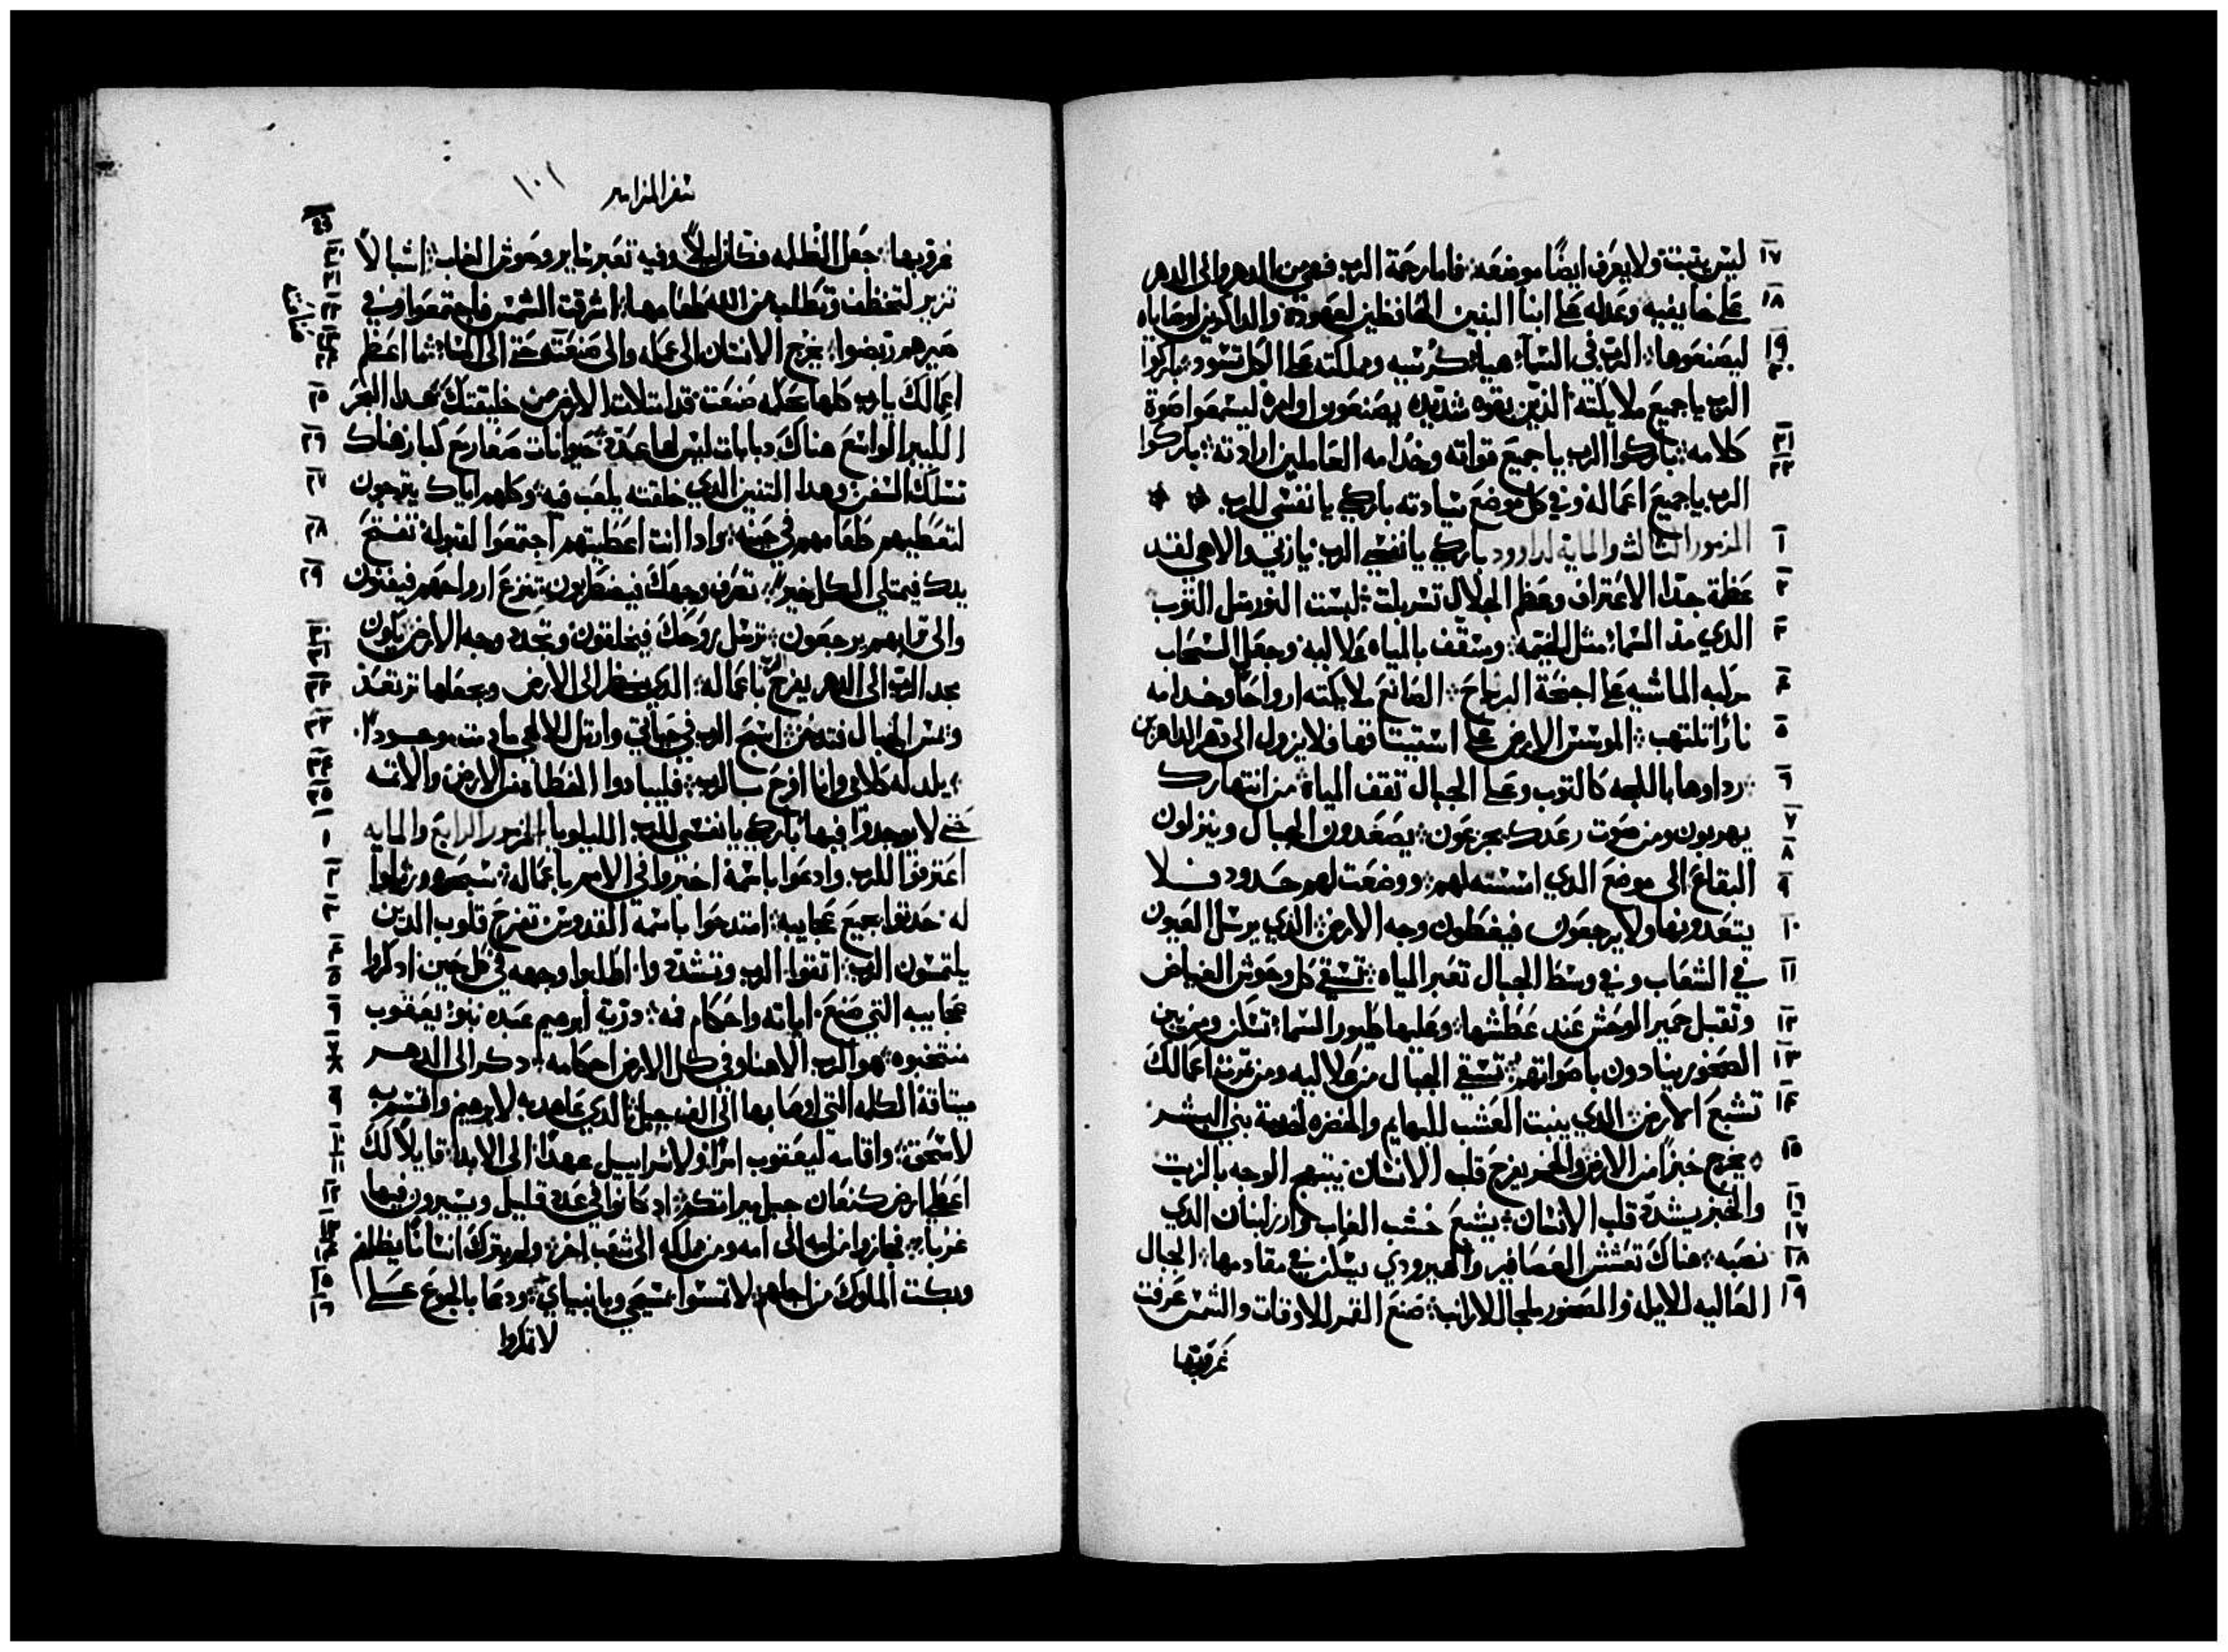 ١٧ ليس يتبت ولا يعرف ايضًا موضعه فاما رحمة الرب فهي من الدهر والى الدهر
١٨ على خايفيه وعدله على ابنا البنين الحافظين لعهوده والداكرين لوصاياه
١٩ ٢٠ ليصنعوها الرب في السما هيا كرسيه ومملكته على الكل تسود باركوا
الرب يا جميع ملايكته الذين بقوه شديده يصنعون اوامره ليسمعوا صوة
٢١ ٢٢ كلامه باركوا الرب يا جميع قواته وخدامه العاملين ارادته باركوا
الرب يا جميع اعماله وفي كل موضع سيادته باركي يا نفسي للرب
١ المزمور الثالث والمايه لداوود باركي يا نفسي الرب يا ربي والاهي لقد
٢ عظمة جدًا الاعتراف وعظم الجلال تسربلت لبست النور مثل التوب
٣ الذي مد السما مثل الخيمه وسقف بالمياه علاليه وجعل السحاب
٤ مركبه الماشيه على اجنحة الرياح الصانع ملايكته ارواحًا وخدامه
٥ نارًا تلتهب الموسس الارض على استيتاقها فلا يزول الى دهر الداهرين
٦ رداوها اللجه كالتوب وعلى الجبال تقف المياه من انتهارك
٧ ٨ يهربون ومن صوت رعدك يجزعون يصعدون الجبال وينزلون
٩ البقاع الى موضع الدي اسسته لهم ووضعت لهم حدود فلا
١٠ يتعدونها ولا يرجعون فيغطون وجه الارض الذي يرسل العيون
١١ في الشعاب وفي وسط الجبال تعبر المياه تسقي كل وحوش الغياض
١٢ وتقبل حمير الوحش عند عطشها وعليها طيور السما تسكن ومن بين
١٣ الصخور ينادون باصواتهم تسقي الجبال من علاليه ومن تمرة اعمالك
١٤ تشبع الارض الدي ينبت العشب للبهايم والخضره لخدمة بني البشر
١٥ يخرج خبزًا من الارض والخمر يفرح قلب الانسان يبتهج الوجه بالزيت
١٦ ١٧ والخبز يشدد قلب الانسان يشبع خشب الغاب وارز لبنان الدي
١٨ نصبه هناك تعشش العصافير والهيرودي يسكن في مقادمها الجبال
١٩ العاليه للايله والصخور ملجا للارانب صنع القمر للاوقات والشمس عرفت
غروبها
سفر المزامير ١٠١
٢٠ غروبها جعل الظلمه فكان ليلًا وفيه تعبر ساير وحوش الغاب اشبالًا
٢١ ٢٢ تزير لتخطف وتطلب من الله طعامها اشرقت الشمس فاجتمعوا وفي
٢٣ ٢٤ صيرهم ربضوا يخرج الانسان الى عمله والى صنعته حتى الى المسا ما اعظم
٢٥ اعمالك يا رب كلها بحكمه صنعت قد امتلات الارض من خليقتك هدا البحر
٢٦ الكبير الواسع هناك دبابات ليس لها عدد حيوانات صغار مع كبار هناك
٢٧ تسلك السفن وهدا التنين الدي خلقته يلعب فيه وكلهم اياك يترجون
٢٨ لتعطيهم طعامهم في حينه وادا انت اعطيتهم اجتمعوا لقبوله تفتح
٢٩ يدك فيمتلي الكل خيرًا تصرف وجهك فيضطربون تنزع ارواحهم فيفنون
٣٠ ٣١ والى ترابهم يرجعون ترسل روحك فيخلقون وتجدد وجه الارض يكون
٣٢ مجد الرب الى الدهر يفرح الرب باعماله الدي ينظر الى الارض ويجعلها ترتعد
٣٣ ويمس الجبال فتدخن اسبح الرب في حياتي وارتل للالهي ما دمت موجودًا
٣٤ ٣٥ يلد له كلامي وانا افرح بالرب فليبادوا الخطاه من الارض والاتمه
١ حتى لا يوجدوا فيها باركي يا نفسي للرب الليلويا المزمور الرابع والمايه
٢ اعترفوا للرب وادعوا باسمه اخبروا في الامم باعماله سبحوه ورتلوا
٣ له حدتوا بجميع عجايبه امتدحوا باسمه القدوس تفرح قلوب الدين
٤ ٥ يلتمسون الرب اتقوا الرب وتشددوا اطلبوا وجهه في كل حين ادكروا
٦ عجايبه التي صنع اياته واحكام فمه درية ابرهيم عبده بنو يعقوب
٧ ٨ منتخبوه هو الرب الاهنا وفي كل الارض احكامه دكر الى الدهر
٩ ميتاقة الكلمه التي اوصا بها الى الف جيل الدي عاهد به لابرهيم واقسم به
١٠ ١١ لاسحق واقامه ليعقوب امرًا ولاسراييل عهدًا الى الابد قايلًا لك
١٢ اعطي ارض كنعان حبل ميراتكم اد كانوا في عدد قليل ويسيرون فيها
١٣ ١٤ غربا فجازوا من امه الى امه ومن مملكه الى شعب اخر ولم يترك انسانًا يظلمهم
١٥ ١٦ وبكت الملوك من اجلهم لا تمسوا مسيحي وبانبياي ودعا بالجوع على